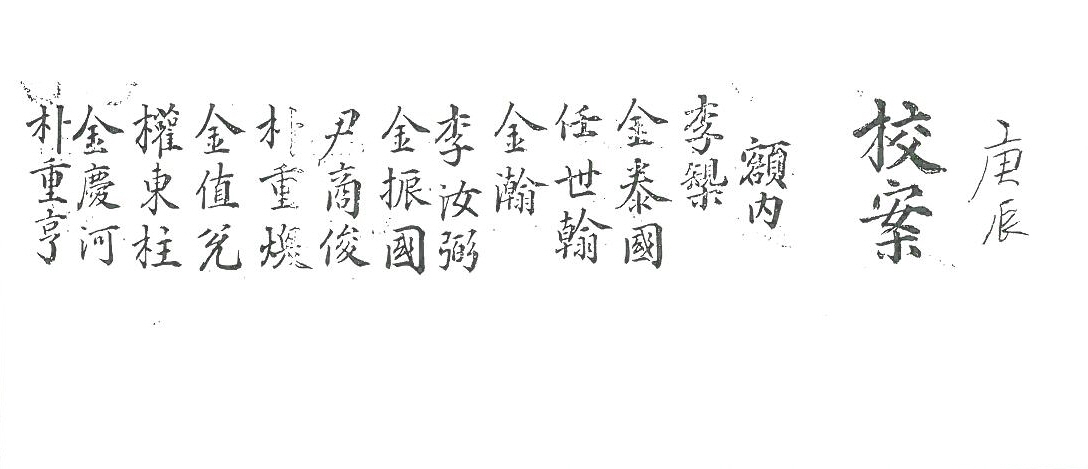 庚辰
校案
額內
李槼
金泰國
任世翰
金瀚
李汝弼
金振國
尹商俊
朴重煥
金値兌
權東柱
金慶河
朴重亨